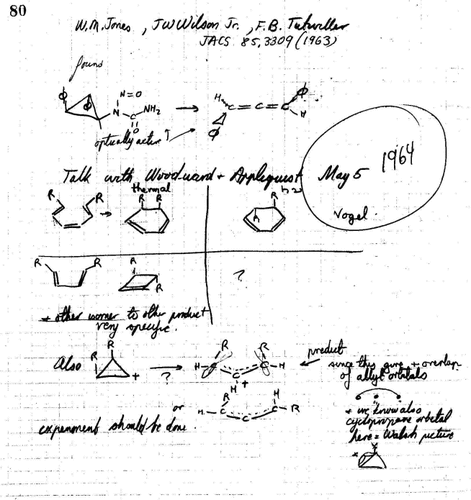 80
W.M. Jones, J W Wilson Jr., F.B. Tutwiller
JACS 85, 3309 (1963)
found
N=O
N-C-NH₂
O
H C=C=C
H
optically active ↑
Talk with Woodward + Applequist May 5
1964
Vogel.
R R
thermal
R R
R
h
R R
R
R
?
* other isomer to other product
very specific.
Also R R +
?
R R
H C C C H
+
product
since this gives + overlap
of allyl orbitals
or
R
H C C C R
H H
experiment should be done.
* we know also
cyclopropane orbital
here = Walsh picture